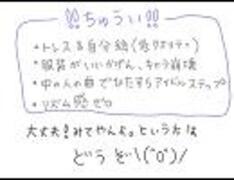 !!ちゅうい!!
・トレス&自分絵(低クオリティ)
・服装がいいかげん、キャラ崩壊
・中の人の曲でひたすらアイドルステップ
・リズム感ゼロ
大丈夫!みてやんよ。という方は
どうぞ\(^o^)/